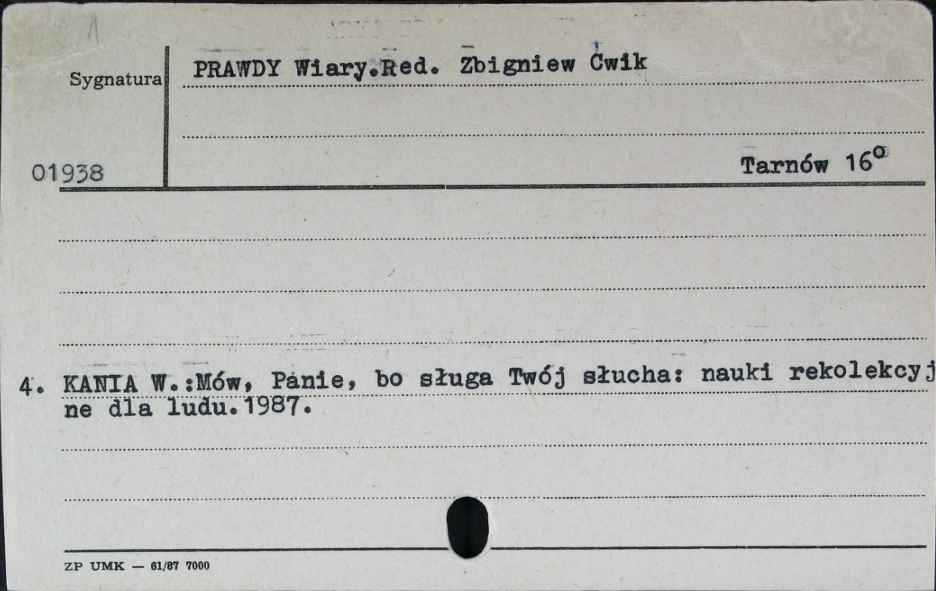 Sygnatura
PRAWDY Wiary.Red. Zbigniew Ćwik
01938
Tarnów 16º
4. KANIA W.:Mów, Panie, bo sługa Twój słucha: nauki rekolekcyj
ne dla ludu.1987.
ZP UMK — 61/87 7000